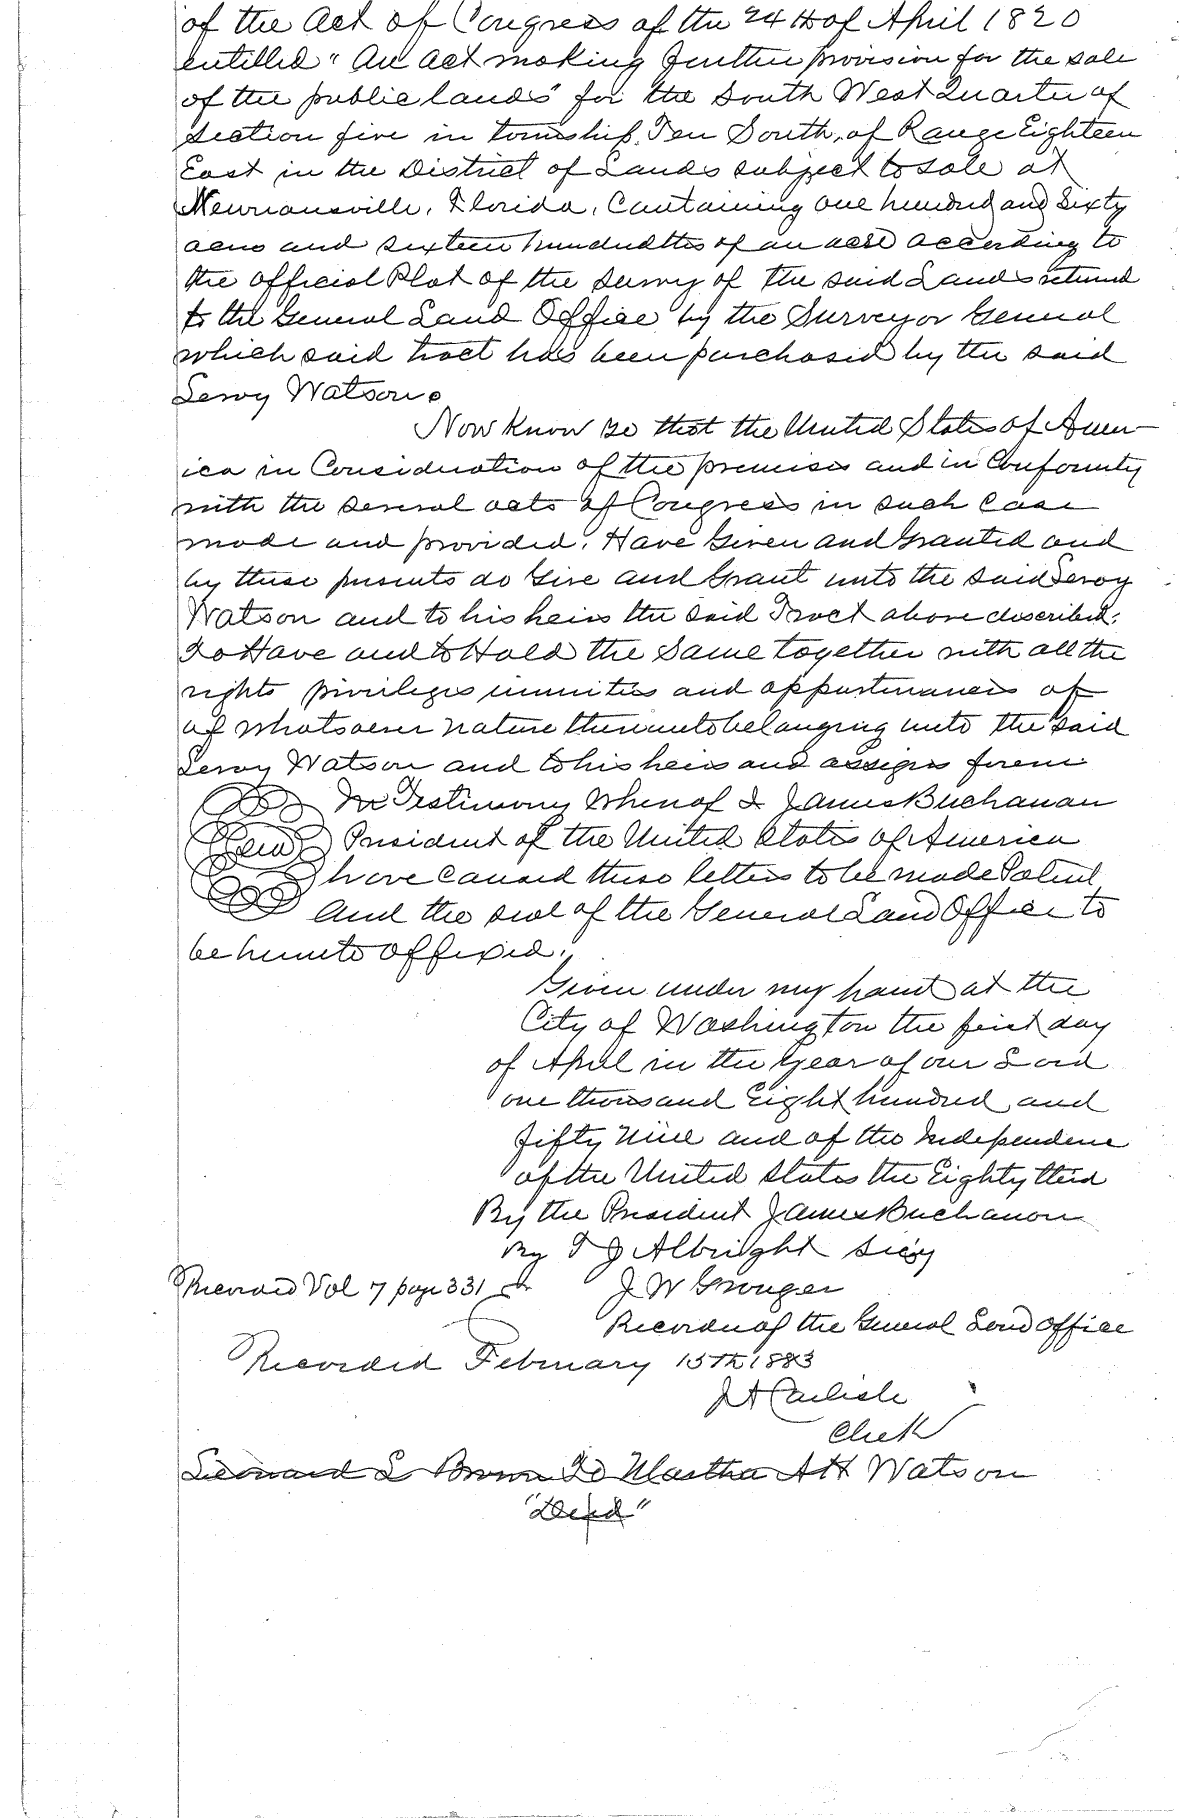 of the Act of Congress of the 24th of April 1820
entitled "An act making further provision for the sale
of the public lands" for the South West Quarter of
Section five in township Ten South, of Range Eighteen
East in the District of Lands subject to sale at
Newnansville, Florida, Containing one hundred and Sixty
acres and sixteen hundredths of an acre according to
the official Plat of the survey of the said Lands returned
to the General Land Office by the Surveyor General
which said tract has been purchased by the said
Leroy Watson.
Now Know ye that the United States of Amer-
ica in Consideration of the premises and in Conformity
with the several acts of Congress in such case
made and provided, Have Given and Granted and
by these presents do Give and Grant unto the said Leroy
Watson and to his heirs the said Tract above described.
To Have and to Hold the Same together with all the
rights privileges immunities and appurtenances of
of whatsoever nature thereunto belonging unto the said
Leroy Watson and to his heirs and assigns forever
In Testimony Whereof I James Buchanan
Seal President of the United States of America
have caused these letters to be made Patent
And the seal of the General Land Office to
be hereunto affixed.
Given under my hand at the
City of Washington the first day
of April in the year of our Lord
one thousand Eight hundred and
fifty nine and of the Independence
of the United States the Eighty third
By the President James Buchanan
By T J Albright Secy
Recorded Vol 7 page 331 J W Granger
Recorder of the General Land Office
Recorded February 15th 1883
J A Carlisle
Clerk
Leonard L Brown To Martha A H Watson
"Deed"